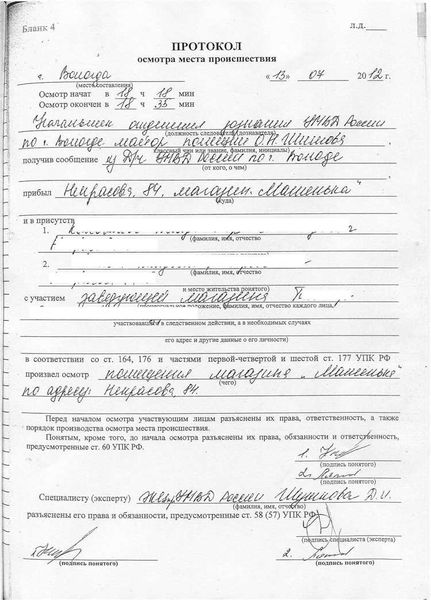 Бланк 4
Л.Д.
ПРОТОКОЛ
осмотра места происшествия
г. Вологда «13» 07 2012 г.
(место составления)
Осмотр начат в 18 ч 18 мин
Осмотр окончен в 18 ч 35 мин
Начальник отделения дознания УМВД России
(должность следователя (дознавателя)
по г. Вологде майор полиции О.Н. Шитова
классный чин или звание, фамилия, инициалы)
получив сообщение из Д/ч УМВД России по г. Вологде
(от кого, о чем)
прибыл Некрасова, 84, магазин „Машенька"
(куда)
и в присутствии
1.
(фамилия, имя, отчество
2.
(фамилия, имя, отчество
и место жительства понятого)
с участием заведующей магазина П
положение, фамилия, имя, отчество каждого лица,
участвовавшего в следственном действии, а в необходимых случаях
его адрес и другие данные о его личности)
в соответствии со ст. 164, 176 и частями первой-четвертой и шестой ст. 177 УПК РФ
произвел осмотр помещения магазина „Машенька"
(чего)
по адресу: Некрасова, 84.
Перед началом осмотра участвующим лицам разъяснены их права, ответственность, а также
порядок производства осмотра места происшествия.
Понятым, кроме того, до начала осмотра разъяснены их права, обязанности и ответственность,
предусмотренные ст. 60 УПК РФ.
1.
(подпись понятого)
2.
(подпись понятого)
Специалисту (эксперту) УМВД России
(фамилия, имя, отчество)
разъяснены его права и обязанности, предусмотренные ст. 58 (57) УПК РФ
(подпись специалиста (эксперта)
1.
(подпись понятого)
2.
(подпись понятого)